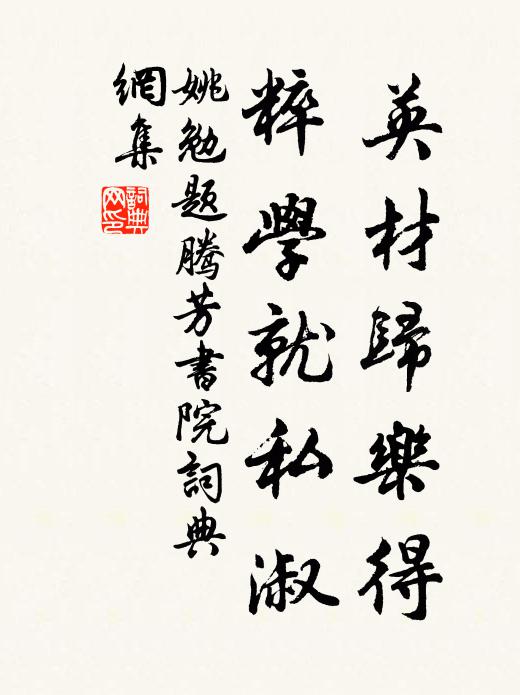 英材歸樂得
粹學就私淑
姚勉題騰芳書院詞典
網集
詞典網印